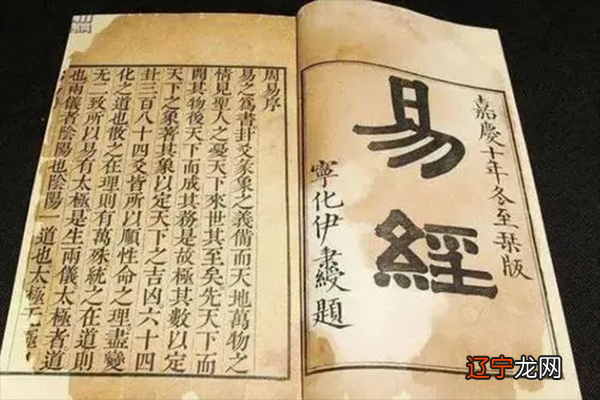 嘉慶十年冬至栞版
易經
寧化伊秉綬題
周易序
易之爲書卦爻彖象之義備而天地萬物之
情見聖人之憂天下來世其至矣先天下而
開其物後天下而成其務是故極其數以定
天下之象著其象以定天下之吉凶六十四
卦三百八十四爻皆所以順性命之理盡變
化之道也散之在理則有萬殊統之在道則
无二致所以易有太極是生兩儀太極者道
也兩儀者陰陽也陰陽一道也太極
辽宁龙网